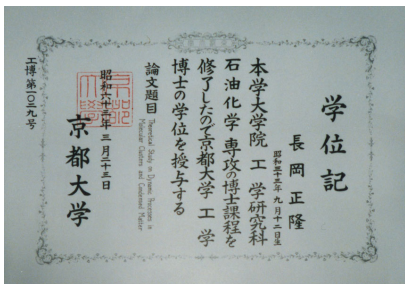 学位記
長岡正隆
昭和三十三年九月十二日生
本学大学院工学研究科
石油化学専攻の博士課程を
修了したので京都大学工学
博士の学位を授与する
論文題目
Theoretical Study on Dynamic Processes in
Molecular Clusters and Condensed Matter
昭和六十三年三月二十三日
京都大学
工博第一〇二九号